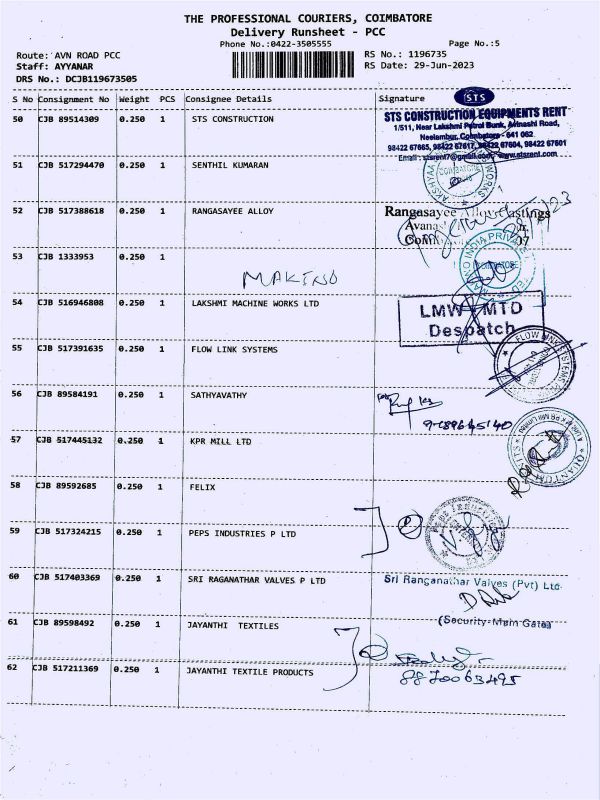 THE PROFESSIONAL COURIERS, COIMBATORE
Delivery Runsheet - PCC
Phone No.:0422-3505555 Page No.:5
Route: AVN ROAD PCC RS No.: 1196735
Staff: AYYANAR RS Date: 29-Jun-2023
DRS No.: DCJB119673505
S No Consignment No Weight PCS Consignee Details Signature
STS
50 CJB 89514309 0.250 1 STS CONSTRUCTION
STS CONSTRUCTION EQUIPMENTS RENT
1/511, Near Lakshmi Petrol Bunk, Avinashi Road,
Neelambur, Coimbatore - 641 062
98422 67665, 98422 67617, 98422 67604, 98422 67601
Email : stsrent7@gmail.com, www.stsrent.com
51 CJB 517294470 0.250 1 SENTHIL KUMARAN
52 CJB 517388618 0.250 1 RANGASAYEE ALLOY
Rangasayee Alloy Castings
53 CJB 1333953 0.250 1
MAKINO
COIMBATORE
54 CJB 516946808 0.250 1 LAKSHMI MACHINE WORKS LTD
LMW - MTD
Despatch
55 CJB 517391635 0.250 1 FLOW LINK SYSTEMS
FLOW LINK SYSTEMS
56 CJB 89584191 0.250 1 SATHYAVATHY
57 CJB 517445132 0.250 1 KPR MILL LTD
58 CJB 89592685 0.250 1 FELIX
59 CJB 517324215 0.250 1 PEPS INDUSTRIES P LTD
60 CJB 517403369 0.250 1 SRI RAGANATHAR VALVES P LTD
Sri Ranganathar Valves (Pvt) Ltd
(Security-Main Gate)
61 CJB 89598492 0.250 1 JAYANTHI TEXTILES
62 CJB 517211369 0.250 1 JAYANTHI TEXTILE PRODUCTS
8870063495